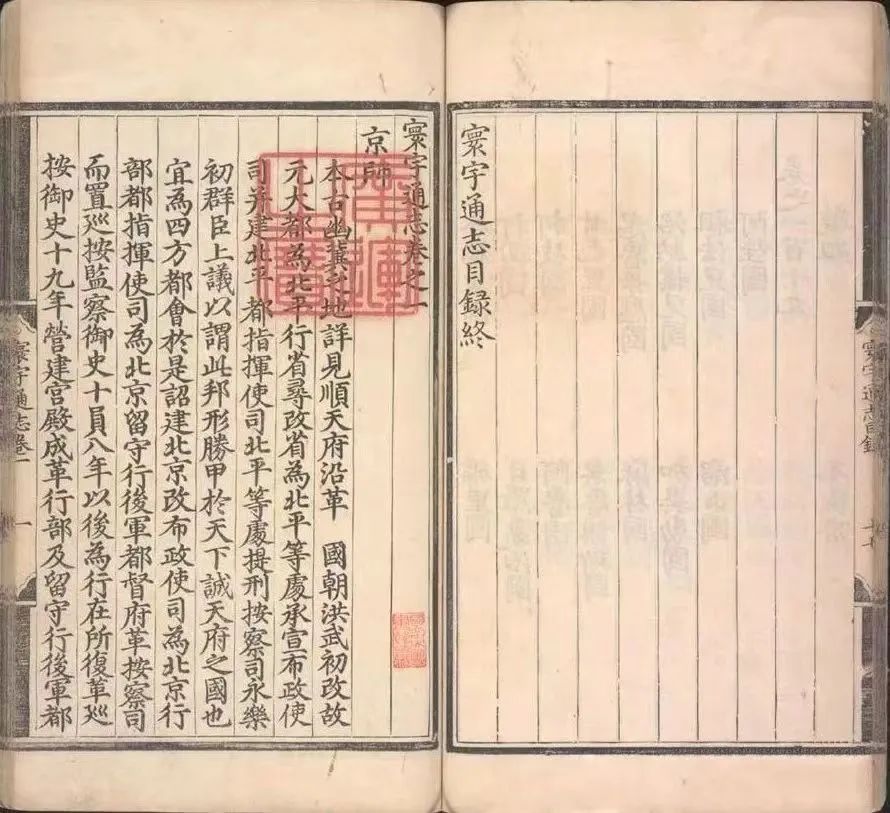 寰宇通志目録終
寰宇通志目録
寰宇通志卷之一
京師
本古幽冀之地詳見順天府沿革　國朝洪武初改故
元大都為北平行省尋改省為北平等處承宣布政使
司并建北平都指揮使司北平等處提刑按察司永樂
初群臣上議以謂此邦形勝甲於天下誠天府之國也
宜為四方都會於是詔建北京改布政使司為北京行
部都指揮使司為北京留守行後軍都督府革按察司
而置巡按監察御史十員八年以後為行在所復革巡
按御史十九年營建宮殿成革行部及留守行後軍都
寰宇通志卷一
一